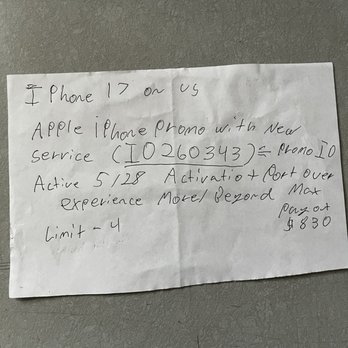 I Phone 17 on us
Apple iPhone promo with New
service (ID260343) = Promo ID
Active 5/28 Activatio + Port over
experience More/Beyond Max
payout
$830
Limit - 4